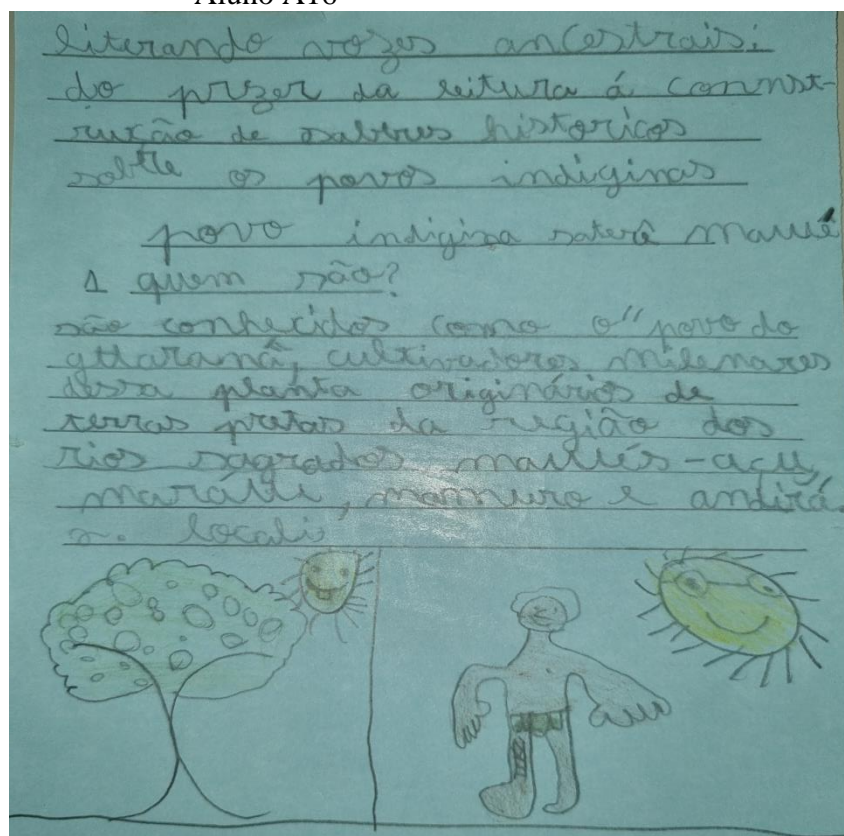 Aluno A16
literando vozes ancestrais:
do przer da leitura á connst-
rução de sabres historicos
sobre os povos indiginas
povo indigina saterê mauué
1 quem são?
são conhecidos como o "povo do
guaraná, cultivadores milenares
dessa planta originários de
terras pretas da região dos
rios sagrados mauués-açu,
maráui, mamuro e andirá.
2. locali